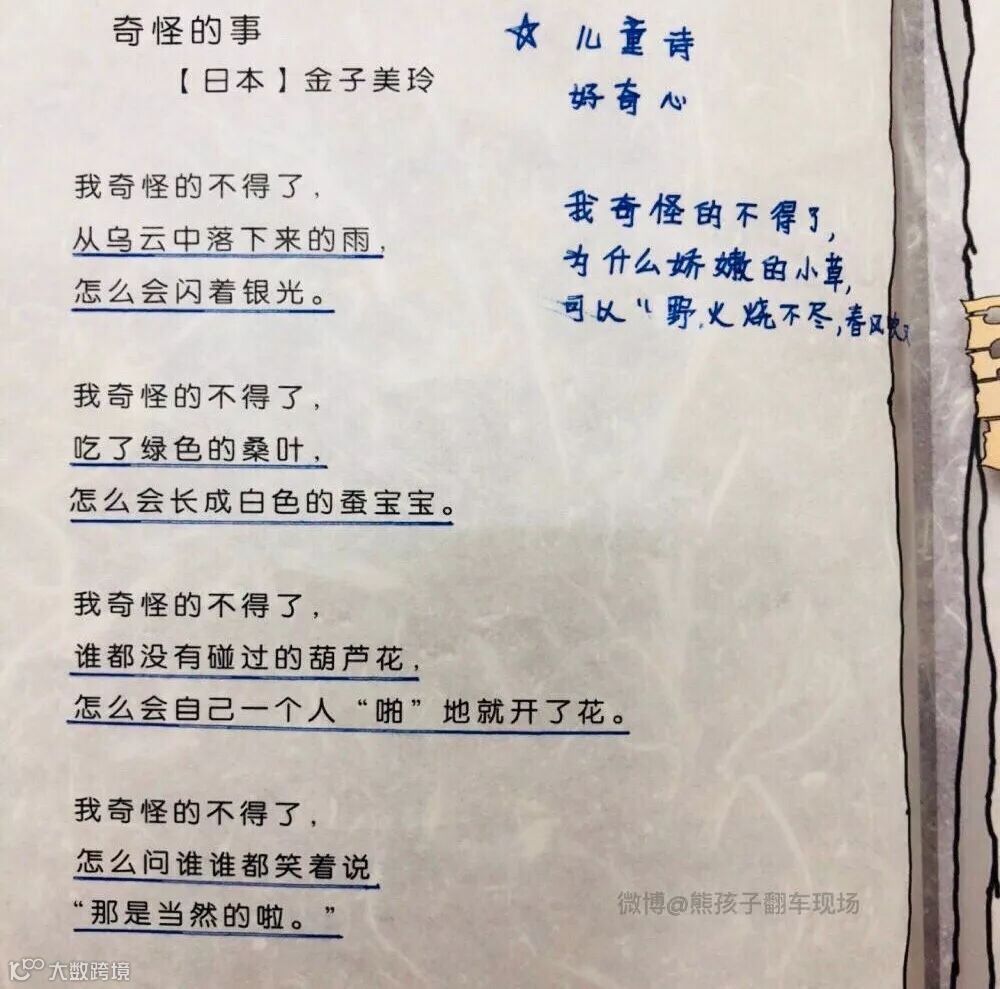 奇怪的事
【日本】金子美玲
我奇怪的不得了，
从乌云中落下来的雨，
怎么会闪着银光。
我奇怪的不得了，
吃了绿色的桑叶，
怎么会长成白色的蚕宝宝。
我奇怪的不得了，
谁都没有碰过的葫芦花，
怎么会自己一个人“啪”地就开了花。
我奇怪的不得了，
怎么问谁谁都笑着说
“那是当然的啦。”
☆ 儿童诗
好奇心
我奇怪的不得了，
为什么娇嫩的小草，
可以“野火烧不尽，春风吹又
微博@熊孩子翻车现场
大数跨境